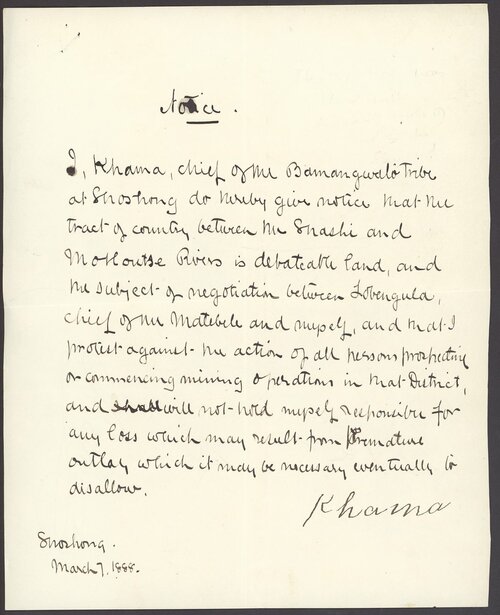 Notice.
I, Khama, chief of the Bamangwato tribe
at Shoshong do hereby give notice that the
tract of country between the Shashi and
Motloutse Rivers is debateable land, and
the subject of negotiation between Lobengula,
chief of the Matebele and myself, and that I
protest against the action of all persons prospecting
or commencing mining operations in that District,
and shall will not hold myself responsible for
any loss which may result from premature
outlay which it may be necessary eventually to
disallow.
Khama
Shoshong.
March 7, 1888.